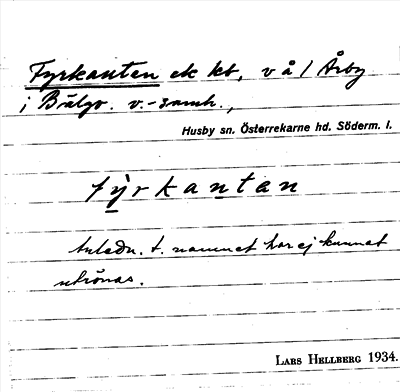 Fyrkanten ek kb, v å l Årby
i Bälgv. v.-samh.,
Husby sn. Österrekarne hd. Söderm. l.
fy̱rkanṯan
Anledn. t. namnet har ej kunnat
utrönas.
LARS HELLBERG 1934.